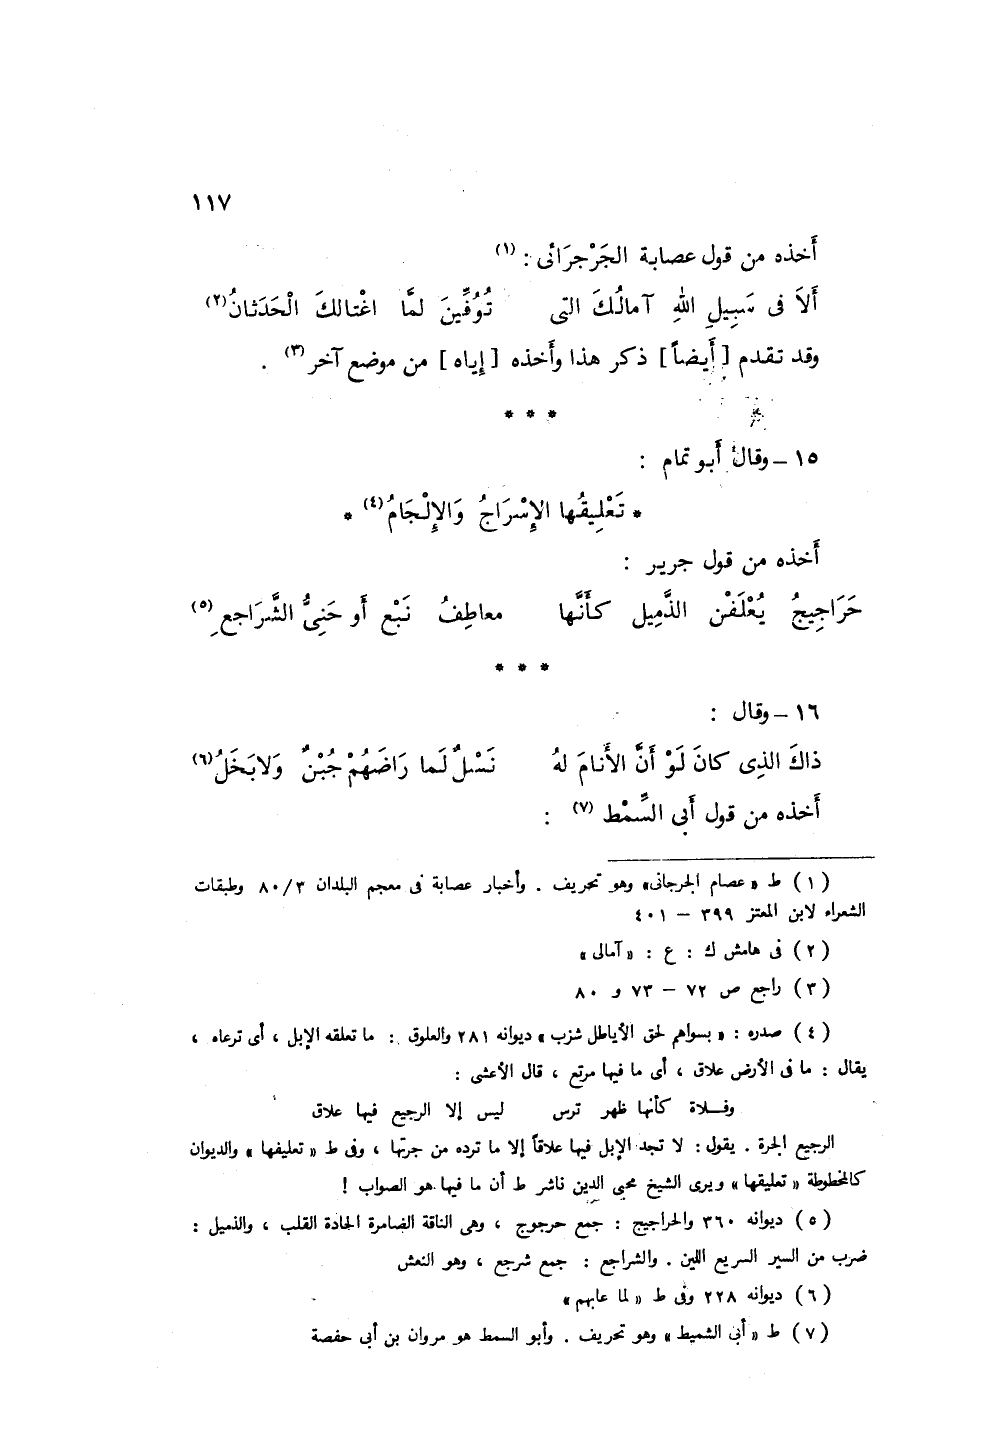 ١١٧
أَخذه من قول عصابة الجَرْجرَائى : (١)
أَلاَ فى سَبِيلِ اللهِ آمالُكَ التى تُوُفِّينَ لمَّا اغْتالكَ الْحَدَثانُ(٢)
وقد تقدم [ أَيضاً ] ذكر هذا وأَخذه [ إياه ] من موضع آخر (٣) .
* * *
١٥ – وقال أَبو تمام :
* تَعْلِيقُها الإِسْرَاجُ وَالإِلْجَامُ(٤) *
أَخذه من قول جرير :
حَرَاجِيجُ يُعْلَفْن الذَّمِيل كأَنَّها معاطِفُ نَبْع أَو حَنِىُّ الشَّرَاجع ِ(٥)
* * *
١٦ – وقال :
ذاكَ الذِى كانَ لَوْ أَنَّ الأَنامَ لهُ نَسْلٌ لَما رَاضَهُمْ جُبْنٌ وَلابَخَلُ(٦)
أَخذه من قول أَبى السِّمْط (٧) :
(١) ط « عصام الجرجانى» وهو تحريف . وأخبار عصابة فى معجم البلدان ٨٠/٣ وطبقات
الشعراء لابن المعتز ٣٩٩ – ٤٠١
(٢) فى هامش ك : ع : « آمالى »
(٣) راجع ص ٧٢ – ٧٣ و ٨٠
(٤) صدره : « بسواهم لحق الأياطل شزب » ديوانه ٢٨١ والعلوق : ما تعلقه الإبل ، أى ترعاه ،
يقال : ما فى الأرض علاق ، أى ما فيها مرتع ، قال الأعشى :
وفلاة كأنها ظهر ترس ليس إلا الرجيع فيها علاق
الرجيع الجرة . يقول : لا تجد الإبل فيها علاقاً إلا ما ترده من جرتها ، وفى ط « تعليفها » والديوان
كالمخطوطة « تعليقها » ويرى الشيخ محيى الدين ناشر ط أن ما فيها هو الصواب !
(٥) ديوانه ٣٦٠ والحراجيج : جمع حرجوج ، وهى الناقة الضامرة الحادة القلب ، والذميل :
ضرب من السير السريع اللين . والشراجع : جمع شرجع ، وهو النعش
(٦) ديوانه ٢٢٨ وفى ط « لما عابهم »
(٧) ط « أبى الشميط » وهو تحريف . وأبو السمط هو مروان بن أبى حفصة